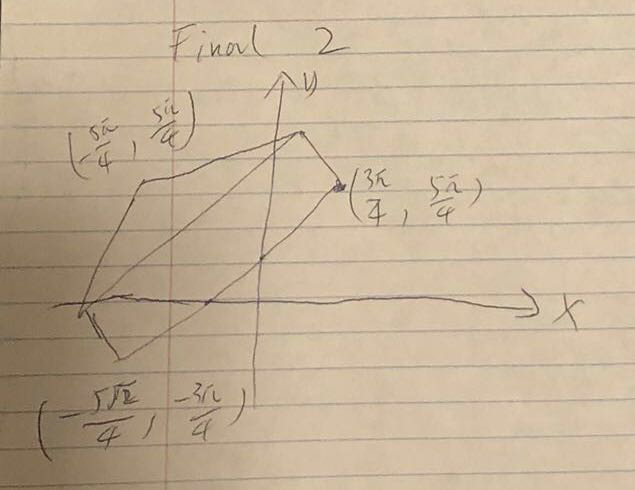 Final 2
y
(-5π/4, 5π/4)
(3π/4, 5π/4)
x
(-5√2/4, -3π/4)